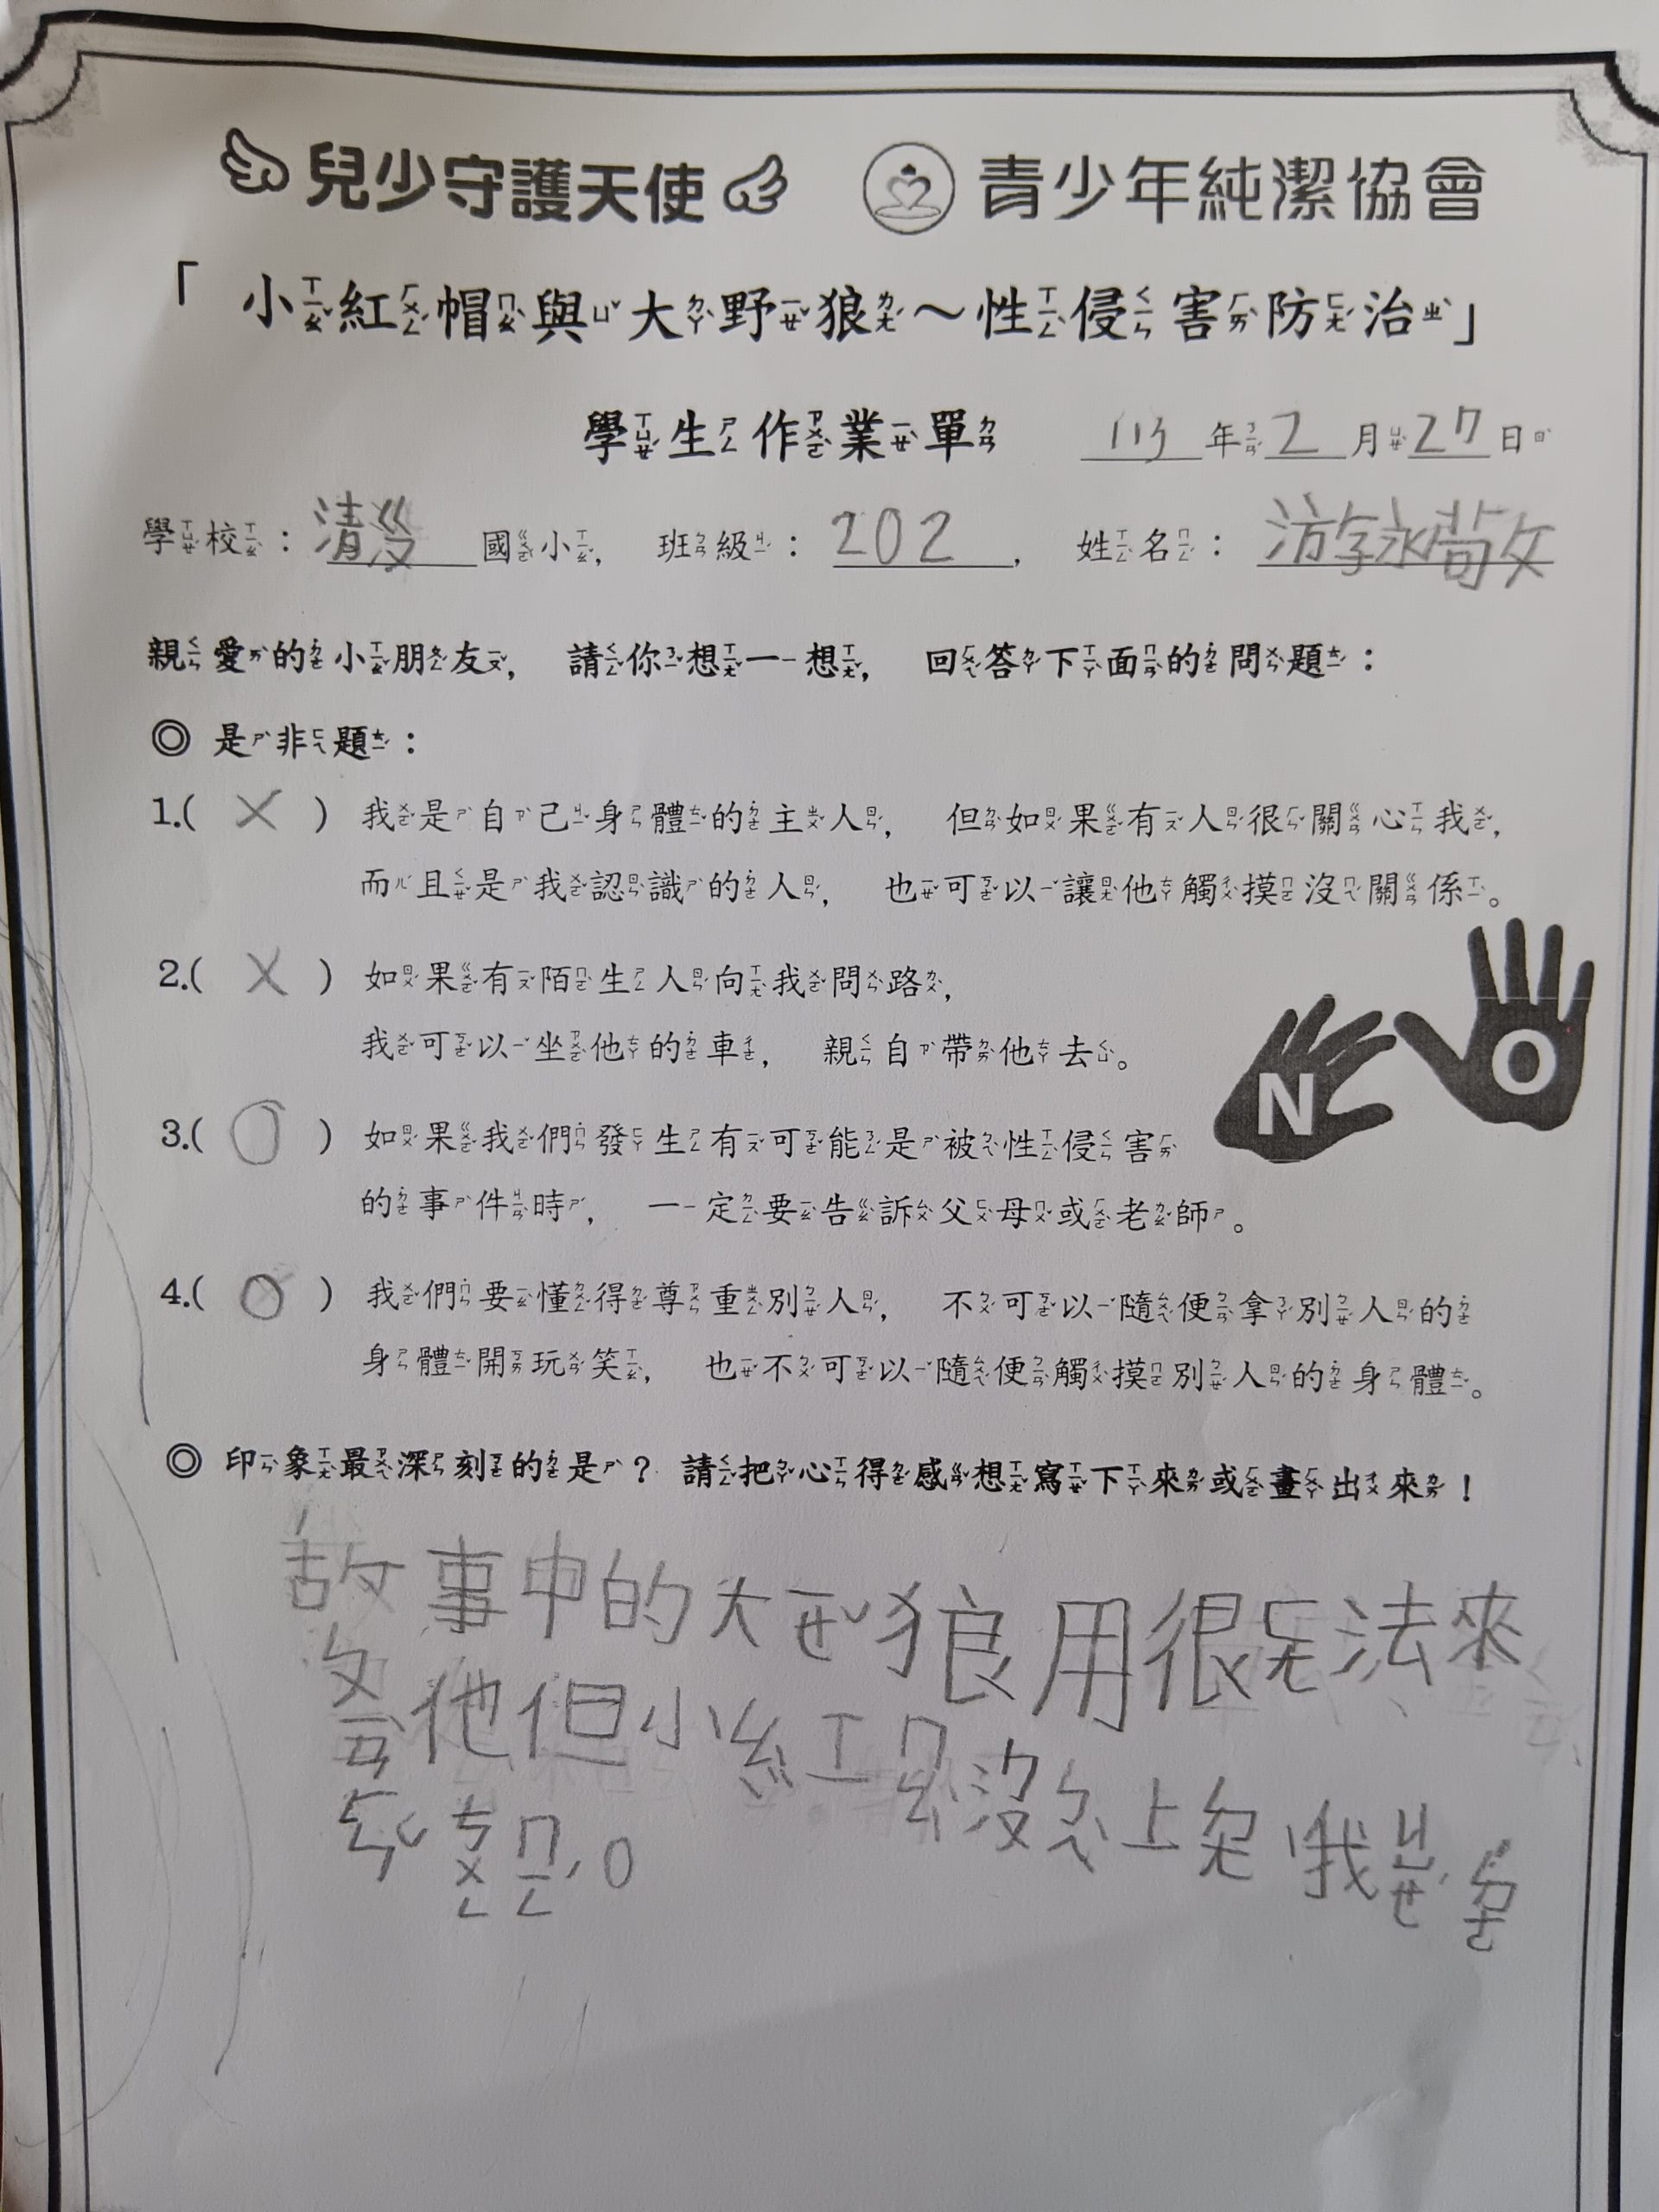 兒少守護天使 青少年純潔協會
「小紅帽與大野狼～性侵害防治」
學生作業單 113年2月27日
學校：清 國小，班級：202，姓名：游
親愛的小朋友，請你想一想，回答下面的問題：
◎ 是非題：
1.( X ) 我是自己身體的主人，但如果有人很關心我，
而且是我認識的人，也可以讓他觸摸沒關係。
2.( X ) 如果有陌生人向我問路，
我可以坐他的車，親自帶他去。
NO
3.( O ) 如果我們發生有可能是被性侵害
的事件時，一定要告訴父母或老師。
4.( O ) 我們要懂得尊重別人，不可以隨便拿別人的
身體開玩笑，也不可以隨便觸摸別人的身體。
◎ 印象最深刻的是？請把心得感想寫下來或畫出來！
故事中的大ㄧㄝˇ狼用很ㄉㄨㄛ法來
他但小紅ㄇㄠˋ沒ㄅㄟˋ上 我ㄐㄩㄝˊ
ㄘㄨㄥㄇㄧㄥˊ。